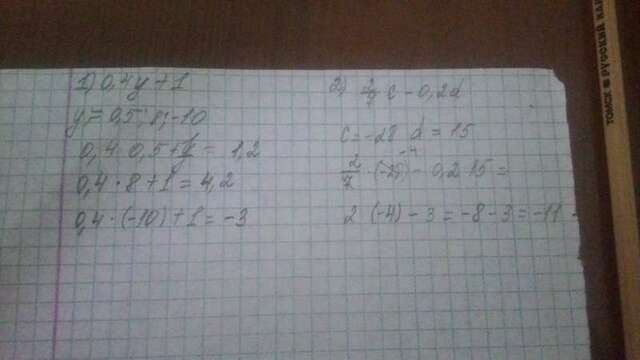 1) 0,4y + 1
y = 0,5; 8; -10
0,4 · 0,5 + 1 = 1,2
0,4 · 8 + 1 = 4,2
0,4 · (-10) + 1 = -3
2) 2/7 c - 0,2d
c = -28 d = 15
2/7 · (-28) -4 - 0,2 15 =
2 (-4) - 3 = -8 - 3 = -11
ТОМСК В РУССКИЙ КАР